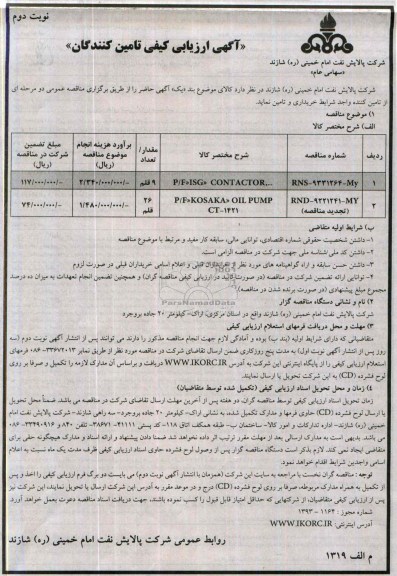 نوبت دوم
«آگهی ارزیابی کیفی تامین کنندگان»
شرکت پالایش نفت امام خمینی (ره) شازند
«سهامی عام»
شرکت پالایش نفت امام خمینی (ره) شازند در نظر دارد کالای موضوع بند «یک» آگهی حاضر را از طریق برگزاری مناقصه عمومی دو مرحله ای
از تامین کننده واجد شرایط خریداری و تامین نماید.
۱) موضوع مناقصه
الف) شرح مختصر کالا
ردیف شماره مناقصه شرح مختصر کالا مقدار/تعداد برآورد هزینه انجام موضوع مناقصه (ریال) مبلغ تضمین شرکت در مناقصه (ریال)
۱ RNS-۹۳۳۱۲۶۴-My P/F«ISG» CONTACTOR,... ۹ قلم ۲/۳۴۰/۰۰۰/۰۰۰/- ۱۱۷/۰۰۰/۰۰۰/-
۲ RND-۹۲۲۱۲۴۱-MY (تجدید مناقصه) P/F«KOSAKA» OIL PUMP CT-۱۴۲۱ ۲۶ قلم ۱/۴۸۰/۰۰۰/۰۰۰/- ۷۴/۰۰۰/۰۰۰/-
ب) شرایط اولیه متقاضی
۱- داشتن شخصیت حقوقی شماره اقتصادی، توانایی مالی، سابقه کار مفید و مرتبط با موضوع مناقصه
۲- داشتن کد ملی/شناسه ملی جهت شرکت در مناقصه الزامی است.
۳- داشتن حسن سابقه و ارائه گواهینامه های مورد نظر از خریداران قبلی و اعلام اسامی خریداران قبلی در صورت لزوم
۴- توانایی ارائه تضمین شرکت در مناقصه (در صورت تائید در ارزیابی کیفی مناقصه گران) و همچنین تضمین انجام تعهدات به میزان ده درصد
مبلغ پیشنهادی (در صورت برنده شدن در مناقصه)
۲) نام و نشانی دستگاه مناقصه گزار
شرکت پالایش نفت امام خمینی (ره) شازند واقع در استان مرکزی، اراک- کیلومتر ۲۰ جاده بروجرد
۳) مهلت و محل دریافت فرمهای استعلام ارزیابی کیفی
متقاضیانی که دارای شرایط اولیه (بند ب) بوده و آمادگی لازم جهت انجام مناقصه مذکور را دارند می توانند پس از انتشار آگهی نوبت دوم (سه
روز پس از انتشار آگهی نوبت اول) به مدت پنج روزکاری ضمن ارسال تقاضای شرکت در مناقصه مورد نظر از طریق نمابر ۳۳۶۷۲۰۱۳-۰۸۶ فرمهای
استعلام ارزیابی کیفی را از پایگاه اینترنتی این شرکت به آدرس WWW.IKORC.IR دریافت و براساس آن مدارک لازمه را تکمیل و صرفا بر روی
لوح فشرده (CD) به این شرکت تحویل یا ارسال نمایند.
۴) زمان و محل تحویل اسناد ارزیابی کیفی (تکمیل شده توسط متقاضیان)
زمان تحویل اسناد ارزیابی کیفی توسط مناقصه گران، دو هفته پس از آخرین مهلت ارسال تقاضای شرکت در مناقصه می باشد. ضمنا محل تحویل
یا ارسال لوح فشرده (CD) حاوی فرمها و مدارک تکمیل شده، به نشانی اراک- کیلومتر ۲۰ جاده بروجرد- سه راهی شازند- شرکت پالایش نفت امام
خمینی (ره) شازند- اداره تدارکات و امور کالا- ساختمان ب- طبقه همکف- اتاق ۱۱۸- کد پستی: ۴۱۱۱۱-۳۸۶۷۱ تلفن ۸۴۰ و ۳۳۴۹۰۹۱۶-۰۸۶
می باشد. بدیهی است به مدارک ارسالی بعد از مهلت مقرر ترتیب اثر داده نخواهد شد ضمنا دادن پیشنهاد و ارائه اسناد و مدارک هیچگونه حقی برای
متقاضی ایجاد نمی کند. لازم بذکر است دستگاه مناقصه گزار پس از وصول لوح فشرده حاوی اسناد ارزیابی کیفی ظرف مدت یک ماه نسبت به اعلام
اسامی واجدین شرایط اقدام خواهد نمود.
توجه: مناقصه گران نخست با مراجعه به سایت این شرکت (همزمان با انتشار آگهی نوبت دوم) می بایست دو برگ فرم ارزیابی کیفی را اخذ و پس
از تکمیل به همراه مدارک مربوطه، صرفا بر روی لوح فشرده (CD) درج و در موعد مقرر به آدرس این شرکت ارسال یا تحویل نمایند، این شرکت نیز
پس از ارزیابی کیفی متقاضیان، از شرکتهایی که حداقل امتیاز قابل قبول را کسب نموده باشند، جهت دریافت اسناد مناقصه دعوت بعمل خواهد آورد.
شماره مجوز: ۱۱۶۴-۱۳۹۳
آدرس اینترنتی: WWW.IKORC.IR
روابط عمومی شرکت پالایش نفت امام خمینی (ره) شازند
م الف ۱۳۱۹
ParsNamadData